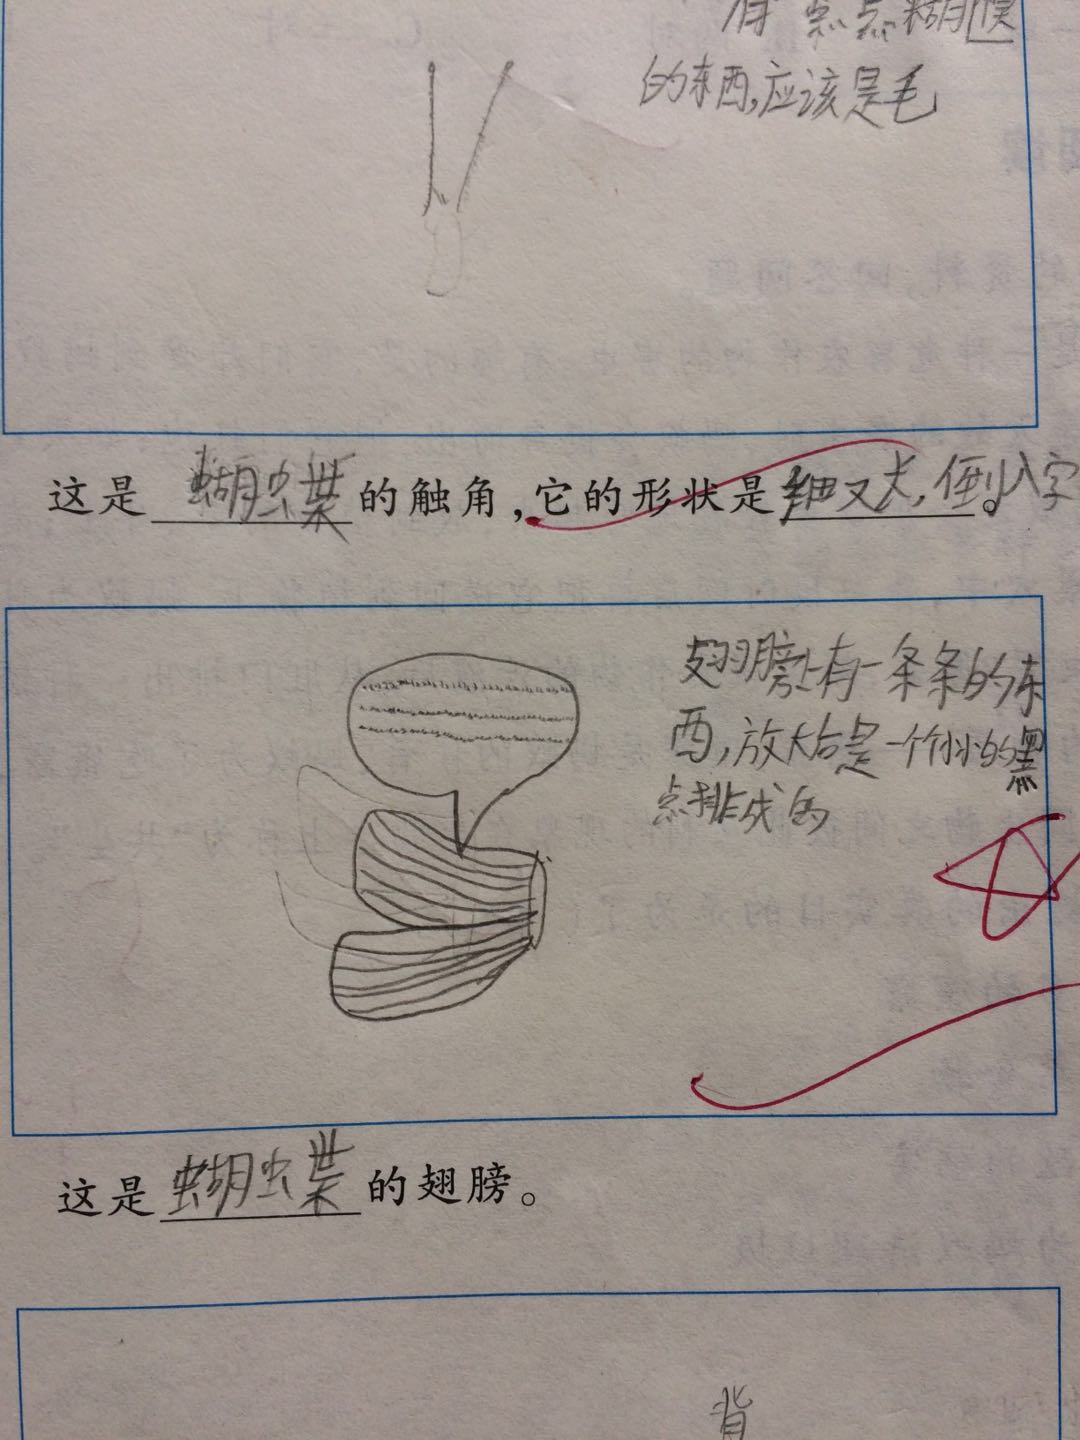 有点点糊糢
的东西,应该是毛
这是蝴蝶的触角,它的形状是细又大,倒八字。
翅膀上有一条条的东
西,放大后是一个个小小的黑
点排成的
这是蝴蝶的翅膀。
背